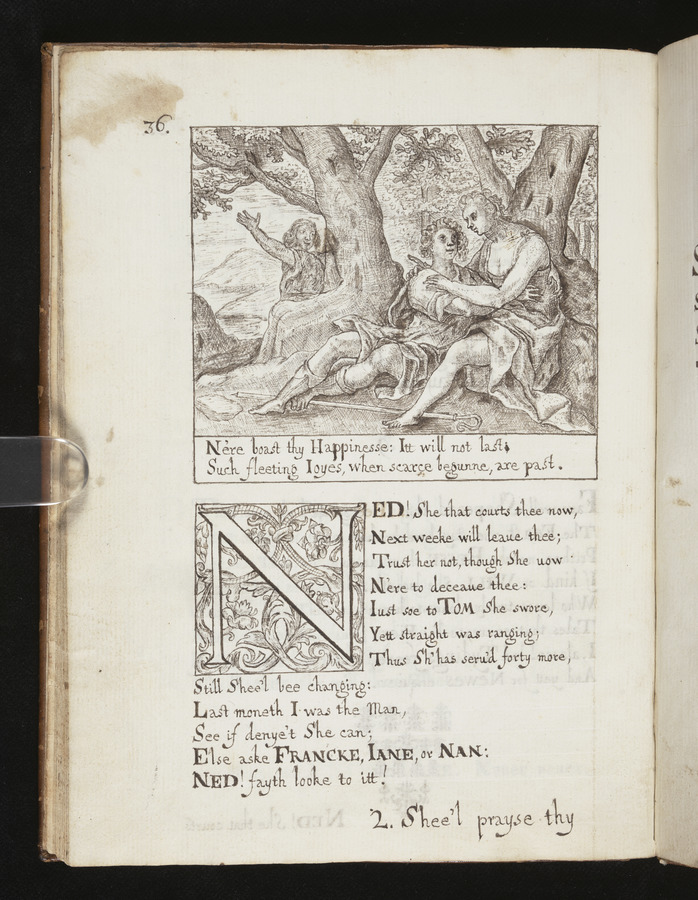 36.
Ne're boast thy Happinesse: Itt will not last;
Such fleeting Ioyes, when scarce begunne, are past.
NED! She that courts thee now,
Next weeke will leaue thee;
Trust her not, though She uow
Ne're to deceaue thee:
Iust soe to TOM She swore,
Yett straight was ranging;
Thus Sh'has seru'd forty more,
Still Shee'l bee changing:
Last moneth I was the Man,
See if denye't She can;
Else aske FRANCKE, IANE, or NAN:
NED! fayth looke to itt!
2. Shee'l prayse thy